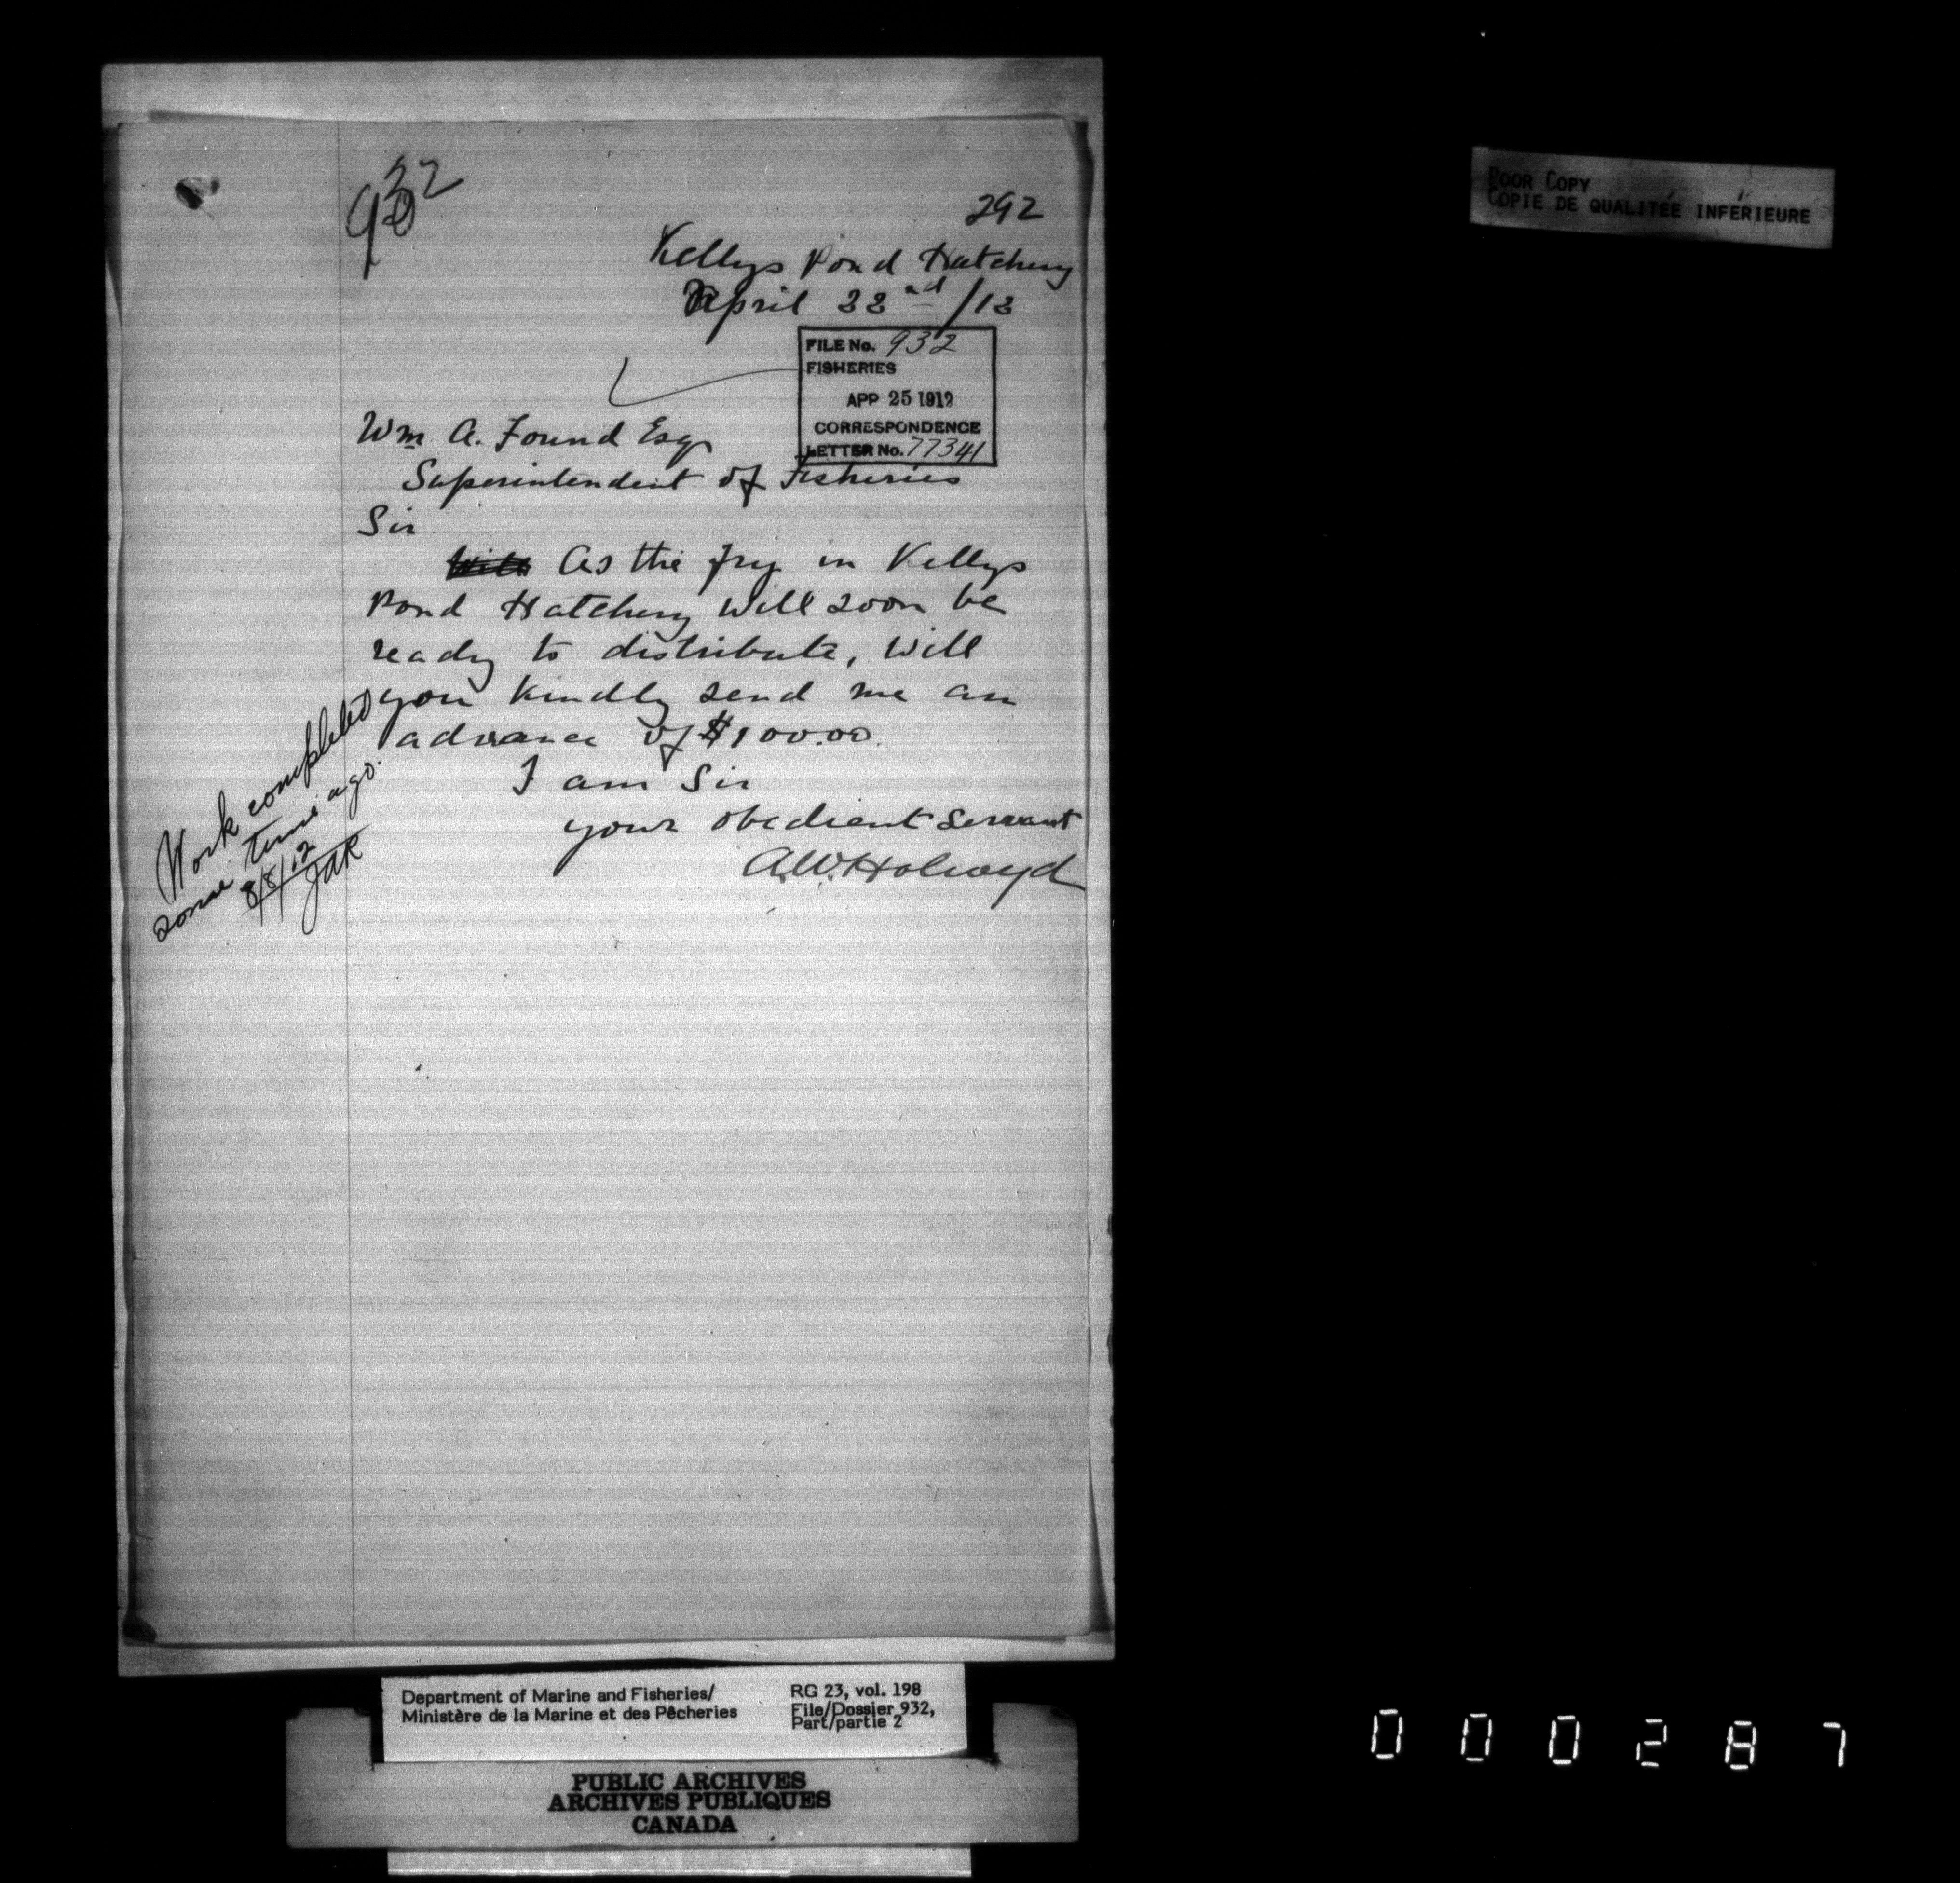 932
292
Kellys Pond Hatchery
April 22nd/12
FILE No. 932
FISHERIES
APR 25 1912
CORRESPONDENCE
LETTER No. 77341
Wm A. Found Esqr
Superintendent of Fisheries
Sir
As the fry in Kellys
Pond Hatchery will soon be
ready to distribute, will
you kindly send me an
advance of $100.00.
I am Sir
your obedient Servant
A.W. Holroyd
Work completed
some time ago.
8/8/12
JAR
POOR COPY
COPIE DE QUALITÉE INFÉRIEURE
Department of Marine and Fisheries/
Ministère de la Marine et des Pêcheries
RG 23, vol. 198
File/Dossier 932,
Part/partie 2
PUBLIC ARCHIVES
ARCHIVES PUBLIQUES
CANADA
000287